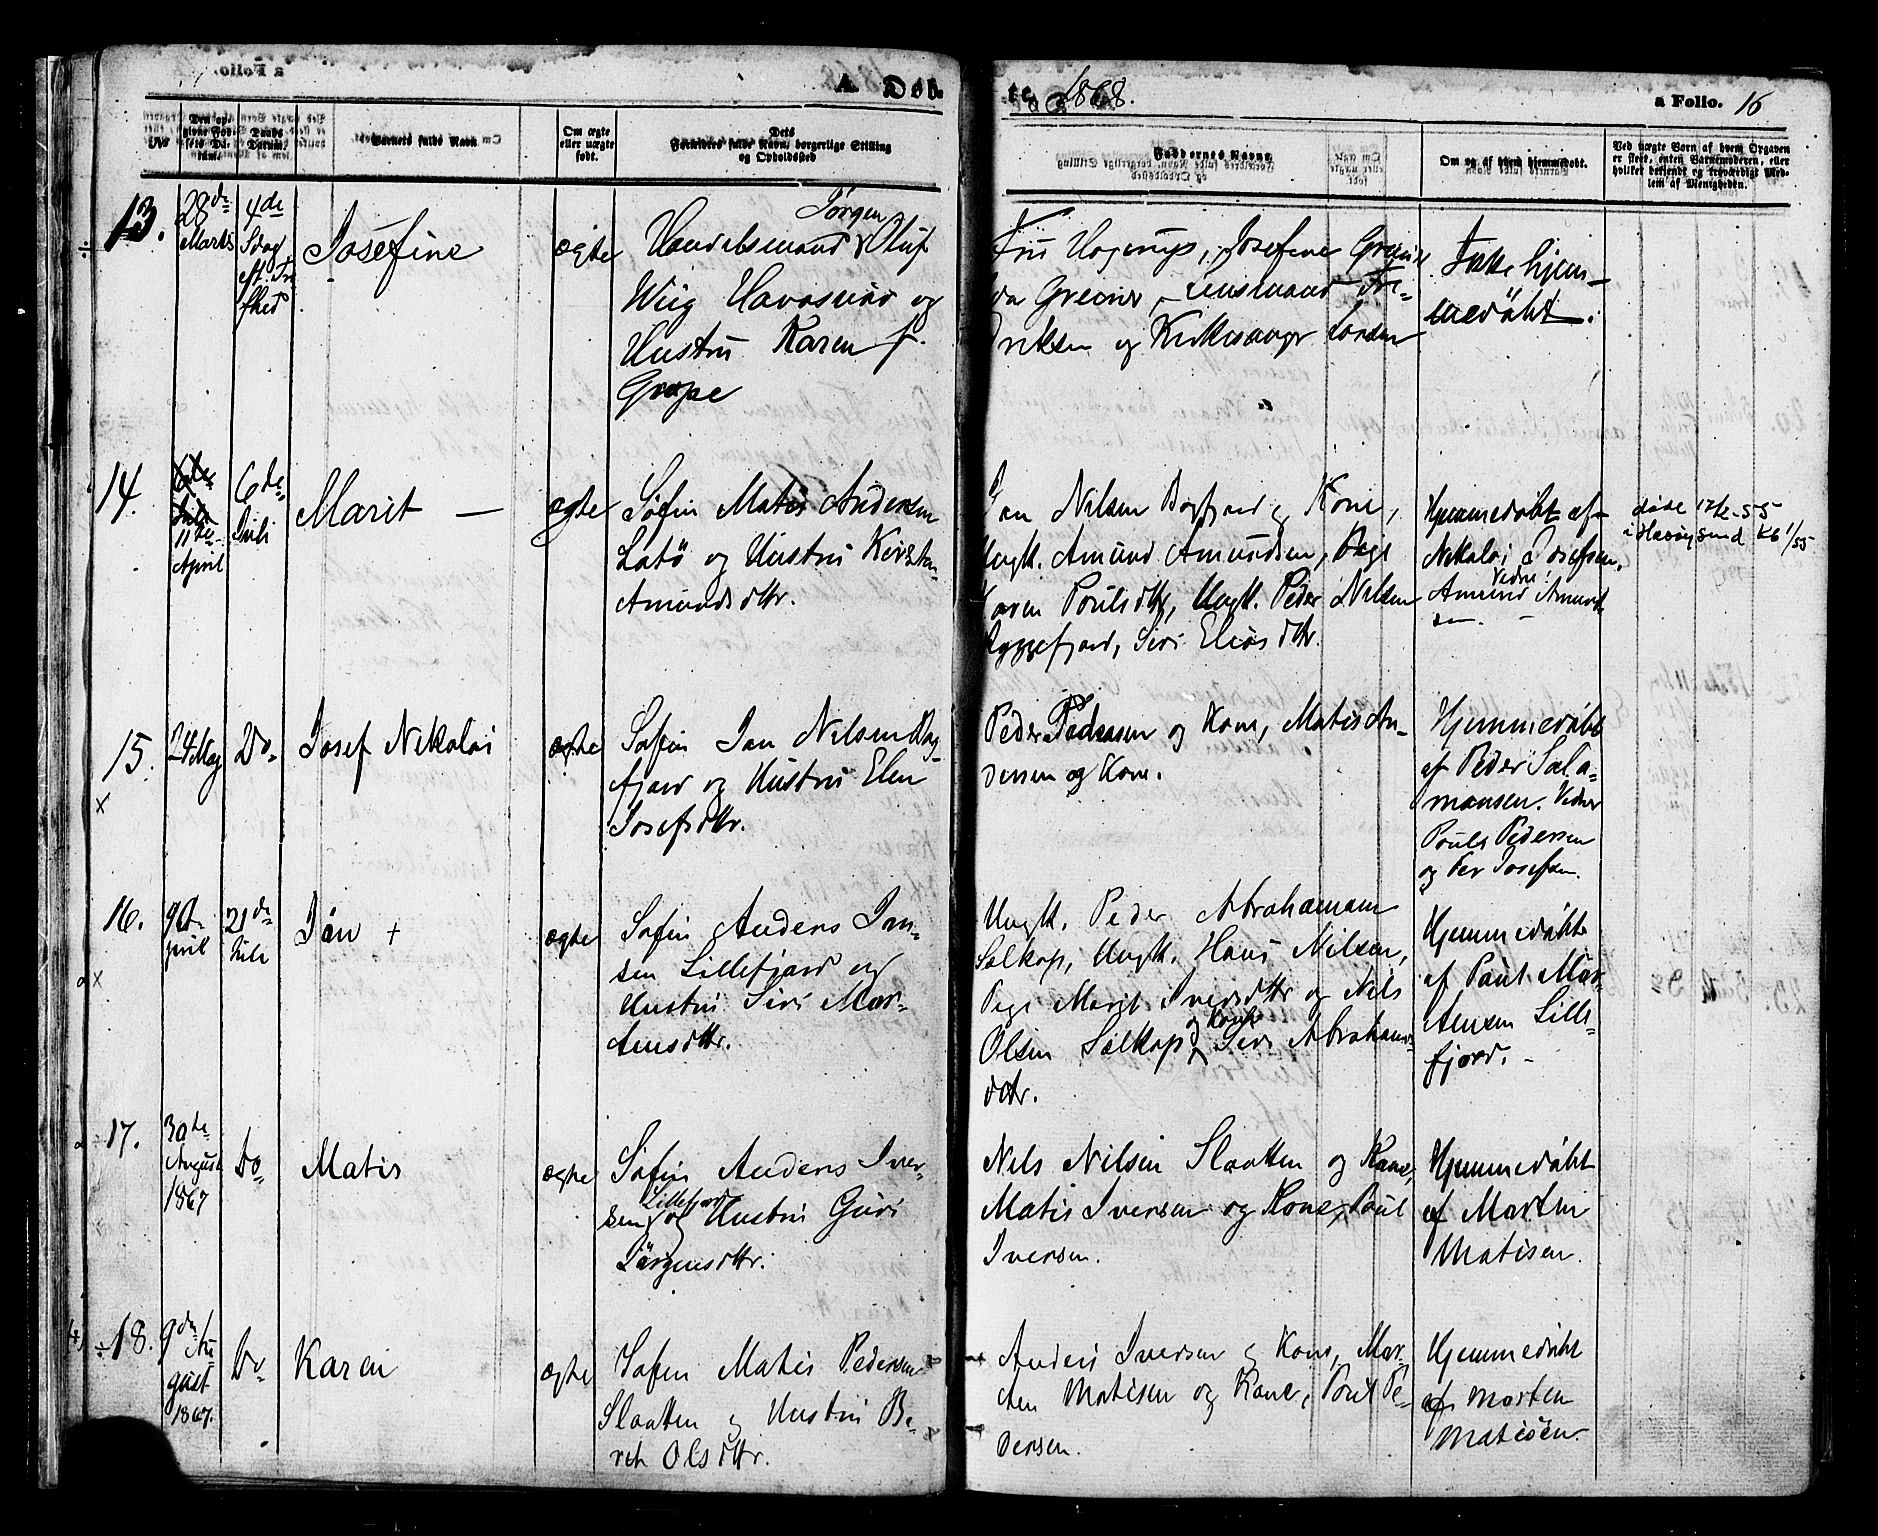 A. Døb-
te 1868.
a Folio. 16
No
Den op-
givne Fød-
sels Da-
tum.
Daabs
Datum.
Barnets fulde Navn
Om ægte
eller uægte
født.
Dets
Forældres fulde Navn, borgerlige Stilling
og Opholdssted
Faddernes Navne
Om og af hvem hjemmedøbt.
Ved uægte Børn af hvem Opgaven
er skeet, enten Barnemoderen, eller
hvilket bekjendt og troværdigt Med-
lem af Menigheden.
13.
28de
Marts
4de
Sdag
Josefine
ægte
Jørgen
Handelsmand Oluf
Wiig Havøsund og
Hustru Karen f.
Greipe
Fru Ursin, Josefine Greiner
Greiner, Lensmand
og Kirkesanger Larsen
Ikke hjem-
medøbt.
14.
6de
Juli
11te
April
6de
Juli
Marit —
ægte
Søfin Matis Andersen
Latø og Hustru Kirsten
Amundsdttr.
Jan Nilsen Bagfjord og Kone,
Ungk. Amund Amundsen, Pige
Karen Poulsdttr, Ungk. Peder Nilsen
Ryggefjord, Siri Eliasdttr.
Hjemmedøbt af
Nikolai Josefsen.
Vidne:
Amund Amund-
sen. —
døde
i Havøysund
15.
24 Maj
Do.
Josef Nikolai
ægte
Søfin Jan Nilsen Bag-
fjord og Hustru Elen
Josefsdttr.
Peder Pedersen og Kone, Matis An-
dersen og Kone.
Hjemmedøbt
af Peder Sala-
monsen. Vidner
Pouls Pedersen
og Per Josefsen.
16.
9 A-
pril
21de
Juli
Jon +
ægte
Søfin Anders Jan-
sen Lillefjord og
Hustru Siri Mor-
tensdttr.
Ungk. Peder Abrahamsen
Selkop, Ungk. Hans Nilsen,
Pige Marit Iversdttr og Nils
og Kone
Olsen Selkop, Siri Abrahams-
dttr.
Hjemmedøbt
af Poul Mor-
tensen Lille-
fjord. —
17.
30te
August
1867
Do.
Matis
ægte
Søfin Anders Iver-
Lillefjord
sen og Hustru Guri
Jørgensdttr.
Nils Nilsen Slaatten og Kone,
Matis Iversen og Kone, Poul
Iversen.
Hjemmedøbt
af Martin
Matisen.
18.
9de Au-
gust
1867.
Do.
Karen
ægte
Søfin Matis Pedersen
Slaatten og Hustru Be-
ret Olsdttr.
Anders Iversen og Kone, Mor-
ten Matisen og Kone, Poul Pe-
dersen.
Hjemmedøbt
af Morten
Matisen.